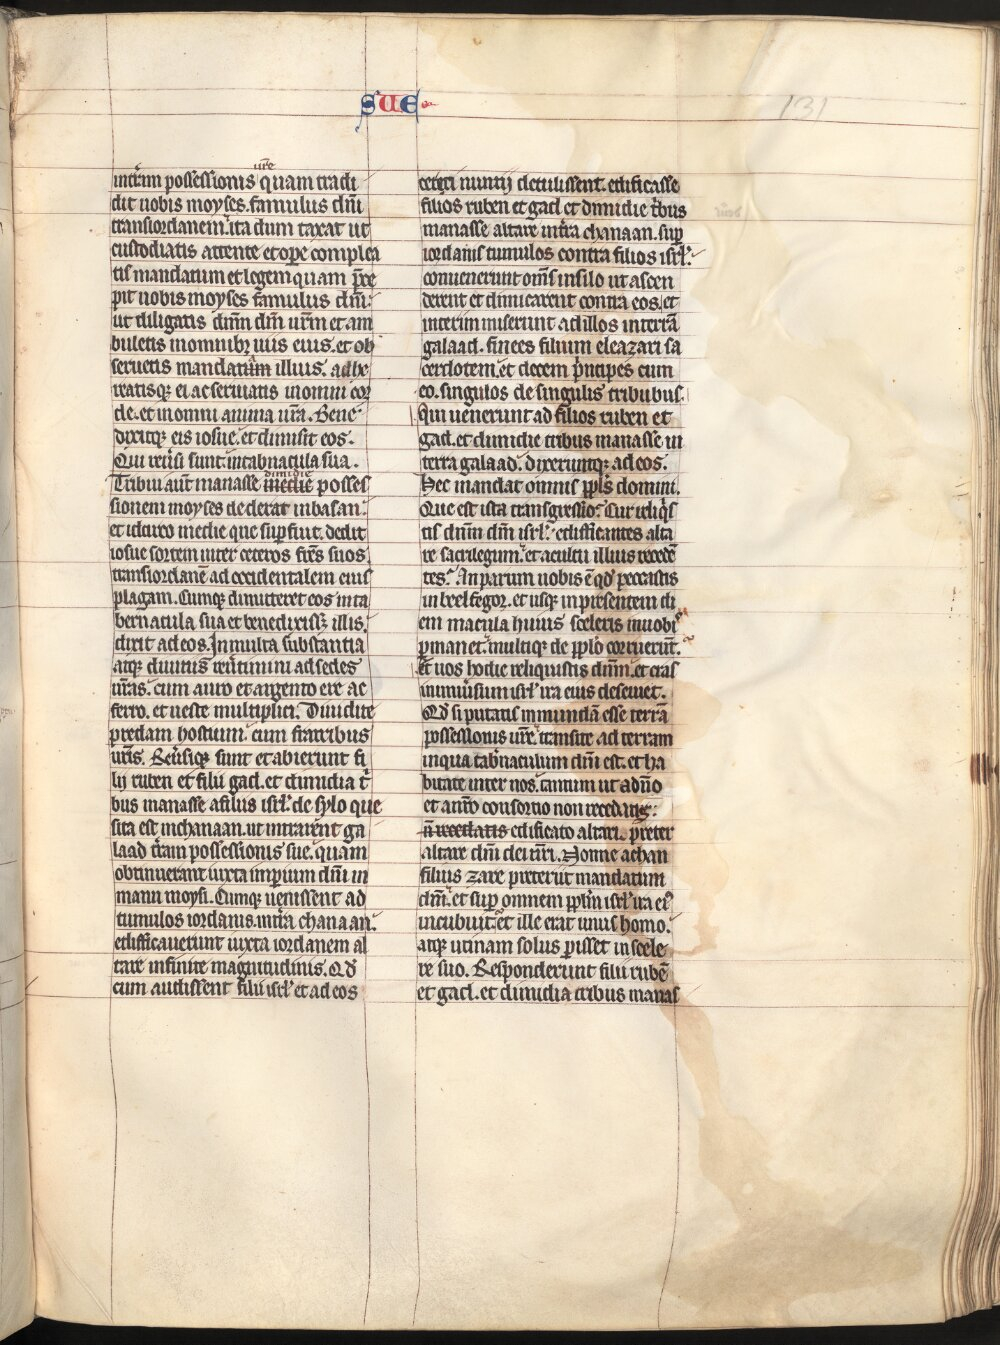 SUE
131
vr̄e
int̄ram possessionis quam tradi
dit uobis moyses. famulus dn̄i
transiordanem. ita dum taxat ut
custodiatis attente et oꝑe complea
tis mandatum et legem quam p̄ce
pit uobis moyses famulus dn̄i
ut diligatis dn̄m dm̄ ur̄m et am
buletis in omnibꝫ uiis eius. et ob
seruetis mandatum illius. adhe
reatisqꝫ ei ac seruiatis in omni cor
de. et in omni anima ur̄a. Bene
dixitqꝫ eis iosue. et dimisit eos.
Qui reu̓si sunt. in tabnacula sua.
dimidie
Tribui aut̄ manasse medie posses
sionem moyses dederat in basan.
et idcirco medie que suꝑfuit. dedit
iosue sortem inter ceteros fr̄es suos
transiordanē ad occidentalem eius
plagam. Cumqꝫ dimitteret eos in ta
bernacula sua et benedixissꝫ illis.
dixit ad eos. In multa substantia
atqꝫ diuitiis reu̓timini ad sedes
ur̄as. cum auro et argento ere ac
ferro. et ueste multiplici. Diuidite
predam hostium cum fratribus
ur̄is. Reu̓siqꝫ sunt et abierunt fi
lij ruben et filii gad. et dimidia t̓
bus manasse a filiis isrl̓. de sylo que
sita est in chanaan. ut intrarent ga
laad t̓ram possessionis sue. quam
obtinuerant iuxta imꝑium dn̄i in
manu moysi. Cumqꝫ uenissent ad
tumulos iordanis. in t̓ra chanaan.
edifficauerunt iuxta iordanem al
tare infinite magnitudinis. Qd̓
cum audissent filii isrl̓ et ad eos
certi nuntij detulissent. edificasse
filios ruben et gad et dimidie t̓bus
manasse altare in t̓ra chanaan. suꝑ
iordanis tumulos contra filios isrl̓.
conuenerunt om̄s in silo ut ascen
derent et dimicarent contra eos. et
interim miserunt ad illos in terrā
galaad. finees filium eleazari sa
cerdotem. et decem p̓ncipes cum
eo. singulos de singulis tribubus.
Qui uenerunt ad filios ruben et
gad. et dimidie tribus manasse in
terra galaad. dixeruntqꝫ ad eos.
Hec mandat omnis ppl̓s domini.
Que est ista transgressio. Cur reliq̓s
tis dn̄m dm̄ isrl̓. edifficantes alta
re sacrilegum. et a cultu illius receden
tes. An parum uobis ē qd̓ peccastis
in beelfegor. et usqꝫ in presentem di
em macula huius sceleris in uobis
ꝑmanet. multiqꝫ de ppl̓o corruerūt.
Et uos hodie reliquistis dn̄m. et cras
in uniu̓sum isrl̓ ira eius deseuiet.
Qd̓ si putatis inmundā esse terrā
possessionis ur̄e. transite ad terram
in qua tab̓naculum dn̄i est. et ha
bitate inter nos. tantum ut a dn̄o
et a nr̄o consortio non recedatis.
n̄ recedatis edificato altari. preter
altare dn̄i dei nr̄i. Nonne achan
filius zare preteriit mandatum
dn̄i. et suꝑ omnem ppl̓m isrl̓ ira ei᷒
incubuit. et ille erat unus homo.
atqꝫ utinam solus ꝑisset in scele
re suo. Responderunt filii rubē
et gad. et dimidia tribus manas